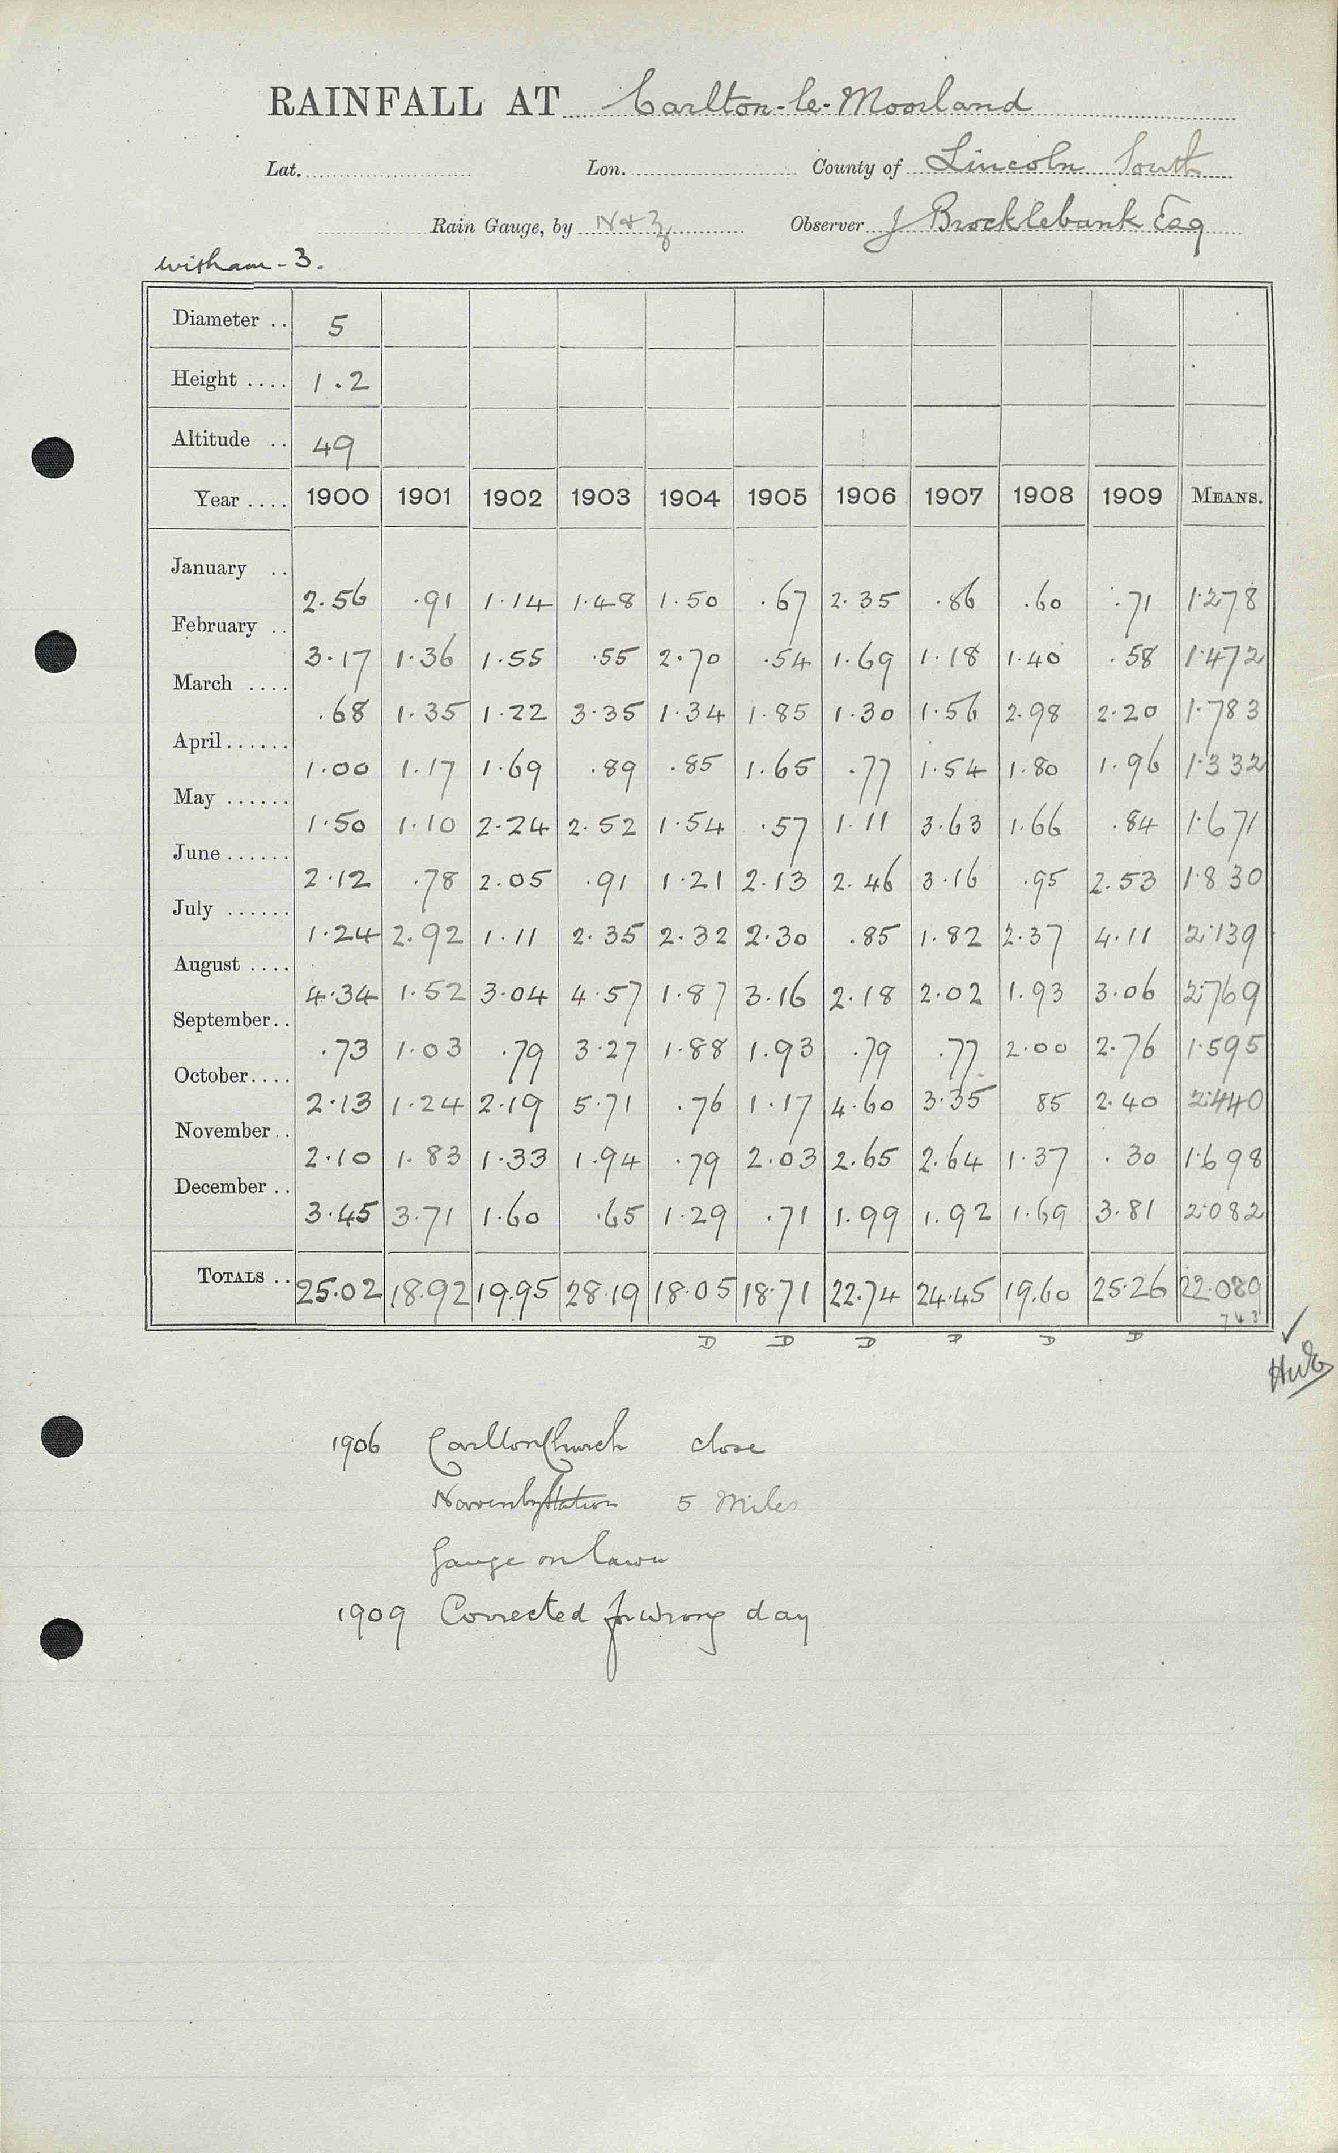 RAINFALL AT Carlton-le-Moorland
Lat. Lon. County of Lincoln South
Rain Gauge, by N & Z Observer J Brocklebank Esq
Witham - 3.
Diameter .. 5
Height .... 1.2
Altitude .. 49
Year .... 1900 1901 1902 1903 1904 1905 1906 1907 1908 1909 MEANS.
January .. 2.56 .91 1.14 1.48 1.50 .67 2.35 .86 .60 .71 1.278
February .. 3.17 1.36 1.55 .55 2.70 .54 1.69 1.18 1.40 .58 1.472
March .... .68 1.35 1.22 3.35 1.34 1.85 1.30 1.56 2.98 2.20 1.783
April...... 1.00 1.17 1.69 .89 .85 1.65 .77 1.54 1.80 1.96 1.332
May ...... 1.50 1.10 2.24 2.52 1.54 .57 1.11 3.63 1.66 .84 1.671
June...... 2.12 .78 2.05 .91 1.21 2.13 2.46 3.16 .95 2.53 1.830
July ...... 1.24 2.92 1.11 2.35 2.32 2.30 .85 1.82 2.37 4.11 2.139
August .... 4.34 1.52 3.04 4.57 1.87 3.16 2.18 2.02 1.93 3.06 2.769
September.. .73 1.03 .79 3.27 1.88 1.93 .79 .77 2.00 2.76 1.595
October.... 2.13 1.24 2.19 5.71 .76 1.17 4.60 3.35 85 2.40 2.440
November.. 2.10 1.83 1.33 1.94 .79 2.03 2.65 2.64 1.37 .30 1.698
December.. 3.45 3.71 1.60 .65 1.29 .71 1.99 1.92 1.69 3.81 2.082
TOTALS .. 25.02 18.92 19.95 28.19 18.05 18.71 22.74 24.45 19.60 25.26 22.089
743
D D D D D D
1906 Carlton Church close
Navenby Station 5 Miles
Gauge on lawn
1909 Corrected for wrong day